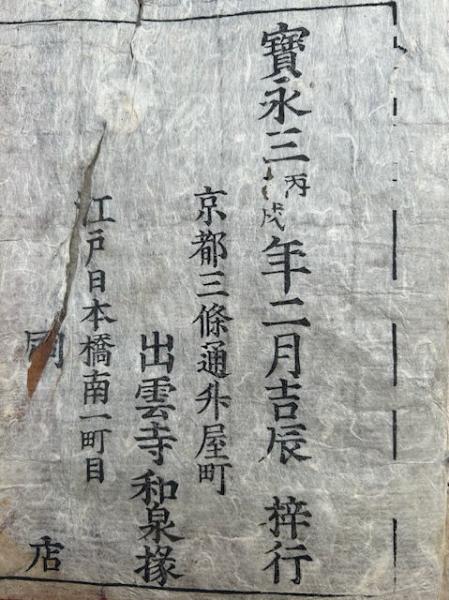 寶永三丙戌年二月吉辰 梓行
京都三條通升屋町
出雲寺和泉掾
江戸日本橋南一町目
同 店